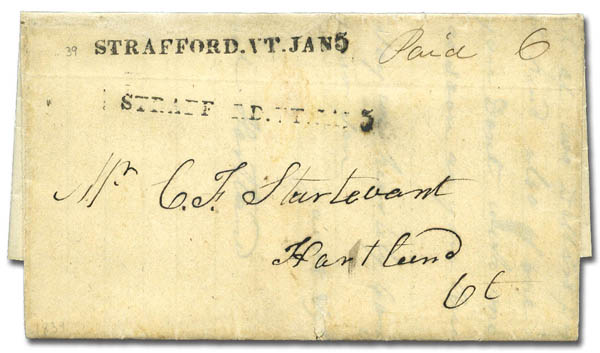 39 STRAFFORD.VT.JAN 5 Paid 6
STRAFF RD.VT.JAN 5
Mr C. F. Sturtevant
Hartland
6t
1839